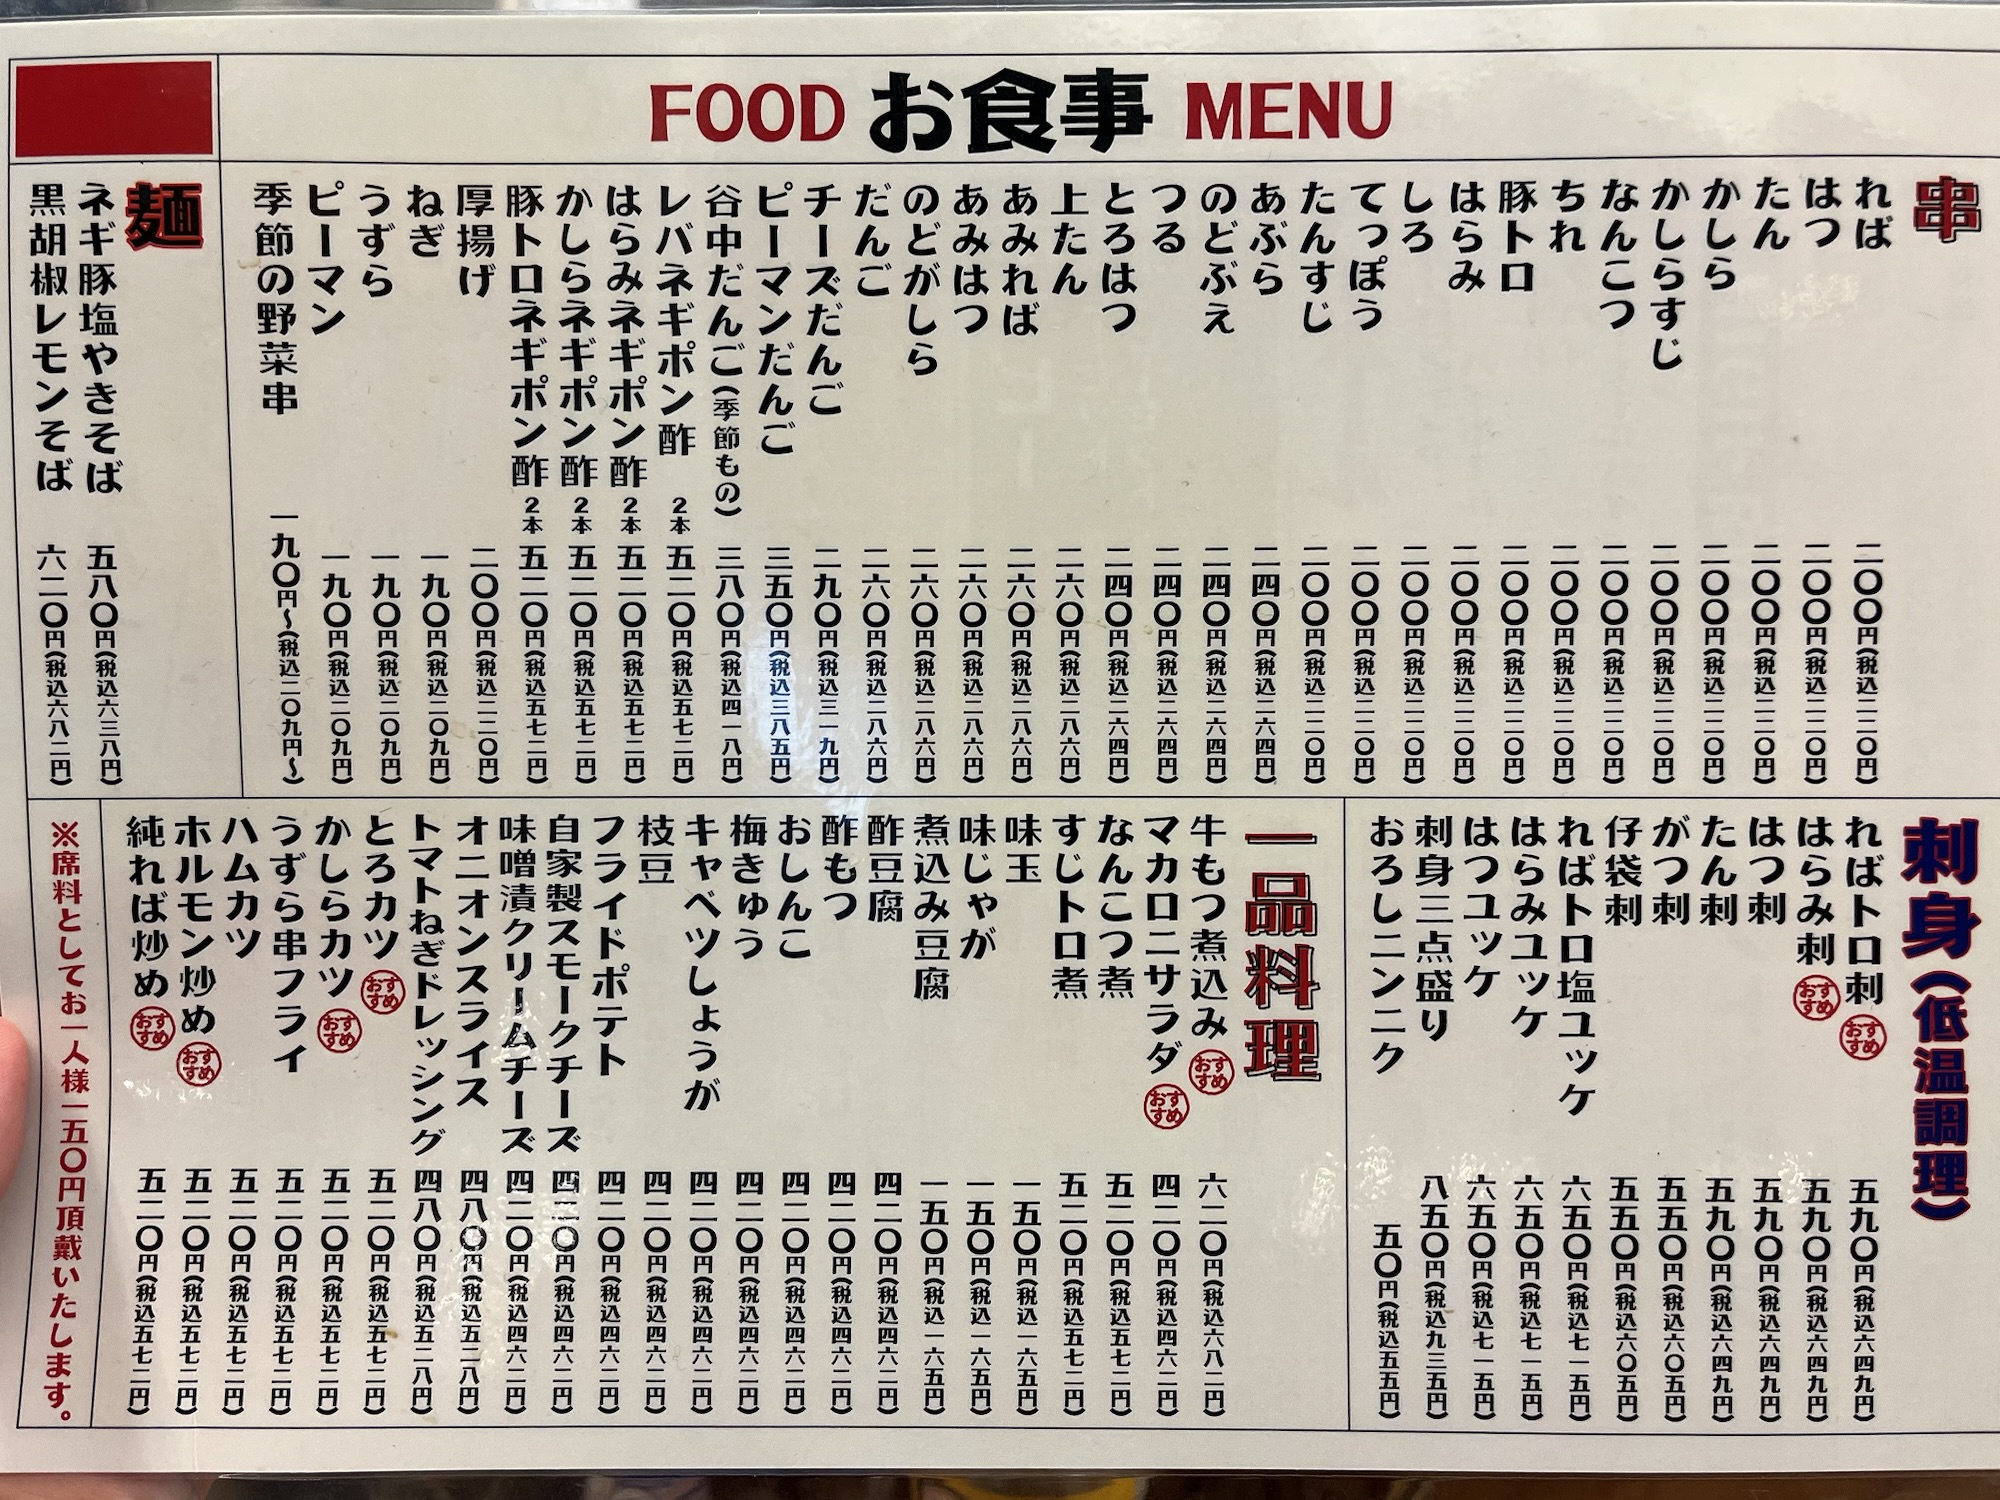 FOOD お食事 MENU
串
ればー 二〇〇円(税込二二〇円)
はつ 二〇〇円(税込二二〇円)
たん 二〇〇円(税込二二〇円)
かしら 二〇〇円(税込二二〇円)
かしらすじ 二〇〇円(税込二二〇円)
なんこつ 二〇〇円(税込二二〇円)
ちれ 二〇〇円(税込二二〇円)
豚トロ 二〇〇円(税込二二〇円)
はらみ 二〇〇円(税込二二〇円)
しろ 二〇〇円(税込二二〇円)
てっぽう 二〇〇円(税込二二〇円)
たんすじ 二〇〇円(税込二二〇円)
あぶら 二四〇円(税込二六四円)
のどぶえ 二四〇円(税込二六四円)
つる 二四〇円(税込二六四円)
とろはつ 二四〇円(税込二六四円)
上たん 二六〇円(税込二八六円)
あみれば 二六〇円(税込二八六円)
あみはつ 二六〇円(税込二八六円)
のどがしら 二六〇円(税込二八六円)
だんご 二六〇円(税込二八六円)
チーズだんご 二九〇円(税込三一九円)
ピーマンだんご 三五〇円(税込三八五円)
谷中だんご(季節もの) 三八〇円(税込四一八円)
レバネギポン酢 2本 五二〇円(税込五七二円)
はらみネギポン酢 2本 五二〇円(税込五七二円)
かしらネギポン酢 2本 五二〇円(税込五七二円)
豚トロネギポン酢 2本 五二〇円(税込五七二円)
厚揚げ 二〇〇円(税込二二〇円)
ねぎ 一九〇円(税込二〇九円)
うずら 一九〇円(税込二〇九円)
ピーマン 一九〇円(税込二〇九円)
季節の野菜串 一九〇円〜(税込二〇九円〜)
麺
ネギ豚塩やきそば 五八〇円(税込六三八円)
黒胡椒レモンそば 六二〇円(税込六八二円)
刺身(低温調理)
ればトロ刺 おすすめ 五九〇円(税込六四九円)
はらみ刺 おすすめ 五九〇円(税込六四九円)
はつ刺 五九〇円(税込六四九円)
たん刺 五九〇円(税込六四九円)
がつ刺 五五〇円(税込六〇五円)
仔袋刺 五五〇円(税込六〇五円)
ればトロ塩ユッケ 六五〇円(税込七一五円)
はらみユッケ 六五〇円(税込七一五円)
はつユッケ 六五〇円(税込七一五円)
刺身三点盛り 八五〇円(税込九三五円)
おろしニンニク 五〇円(税込五五円)
一品料理
牛もつ煮込み おすすめ 六二〇円(税込六八二円)
マカロニサラダ おすすめ 四二〇円(税込四六二円)
なんこつ煮 五二〇円(税込五七二円)
すじトロ煮 五二〇円(税込五七二円)
味玉 一五〇円(税込一六五円)
味じゃが 一五〇円(税込一六五円)
煮込み豆腐 一五〇円(税込一六五円)
酢豆腐 四二〇円(税込四六二円)
酢もつ 四二〇円(税込四六二円)
おしんこ 四二〇円(税込四六二円)
梅きゅう 四二〇円(税込四六二円)
キャベツしょうが 四二〇円(税込四六二円)
枝豆 四二〇円(税込四六二円)
フライドポテト 四二〇円(税込四六二円)
自家製スモークチーズ 四二〇円(税込四六二円)
味噌漬クリームチーズ 四二〇円(税込四六二円)
オニオンスライス 四八〇円(税込五二八円)
トマトねぎドレッシング 四八〇円(税込五二八円)
とろカツ おすすめ 五二〇円(税込五七二円)
かしらカツ おすすめ 五二〇円(税込五七二円)
うずら串フライ 五二〇円(税込五七二円)
ハムカツ 五二〇円(税込五七二円)
ホルモン炒め おすすめ 五二〇円(税込五七二円)
純れば炒め おすすめ 五二〇円(税込五七二円)
※席料としてお一人様一五〇円頂戴いたします。